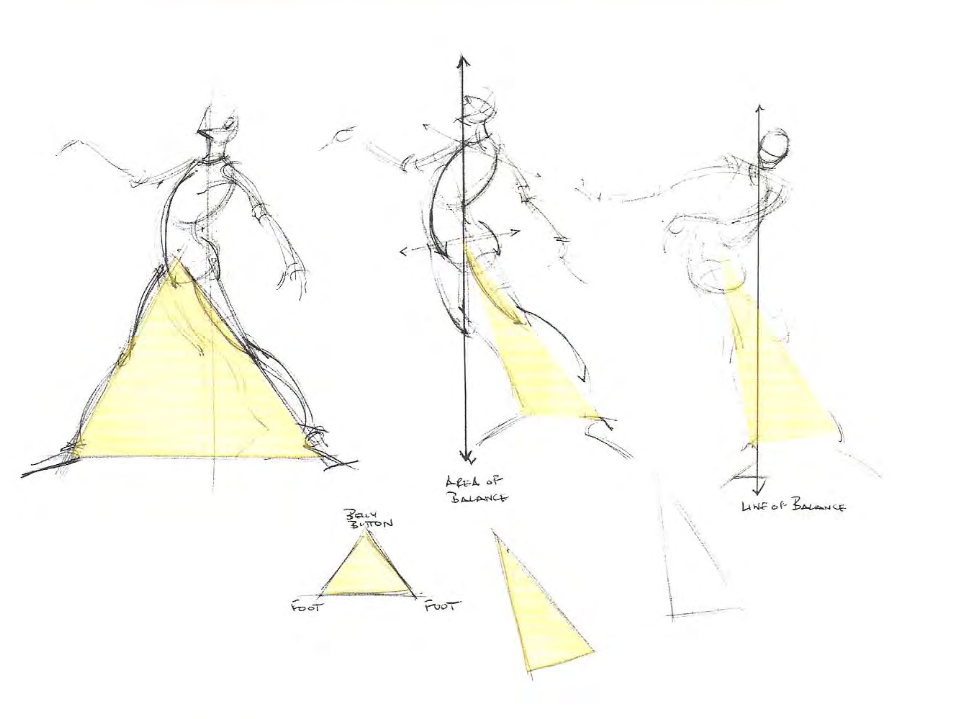 AREA OF
BALANCE
LINE OF BALANCE
BELLY
BUTTON
FOOT
FOOT